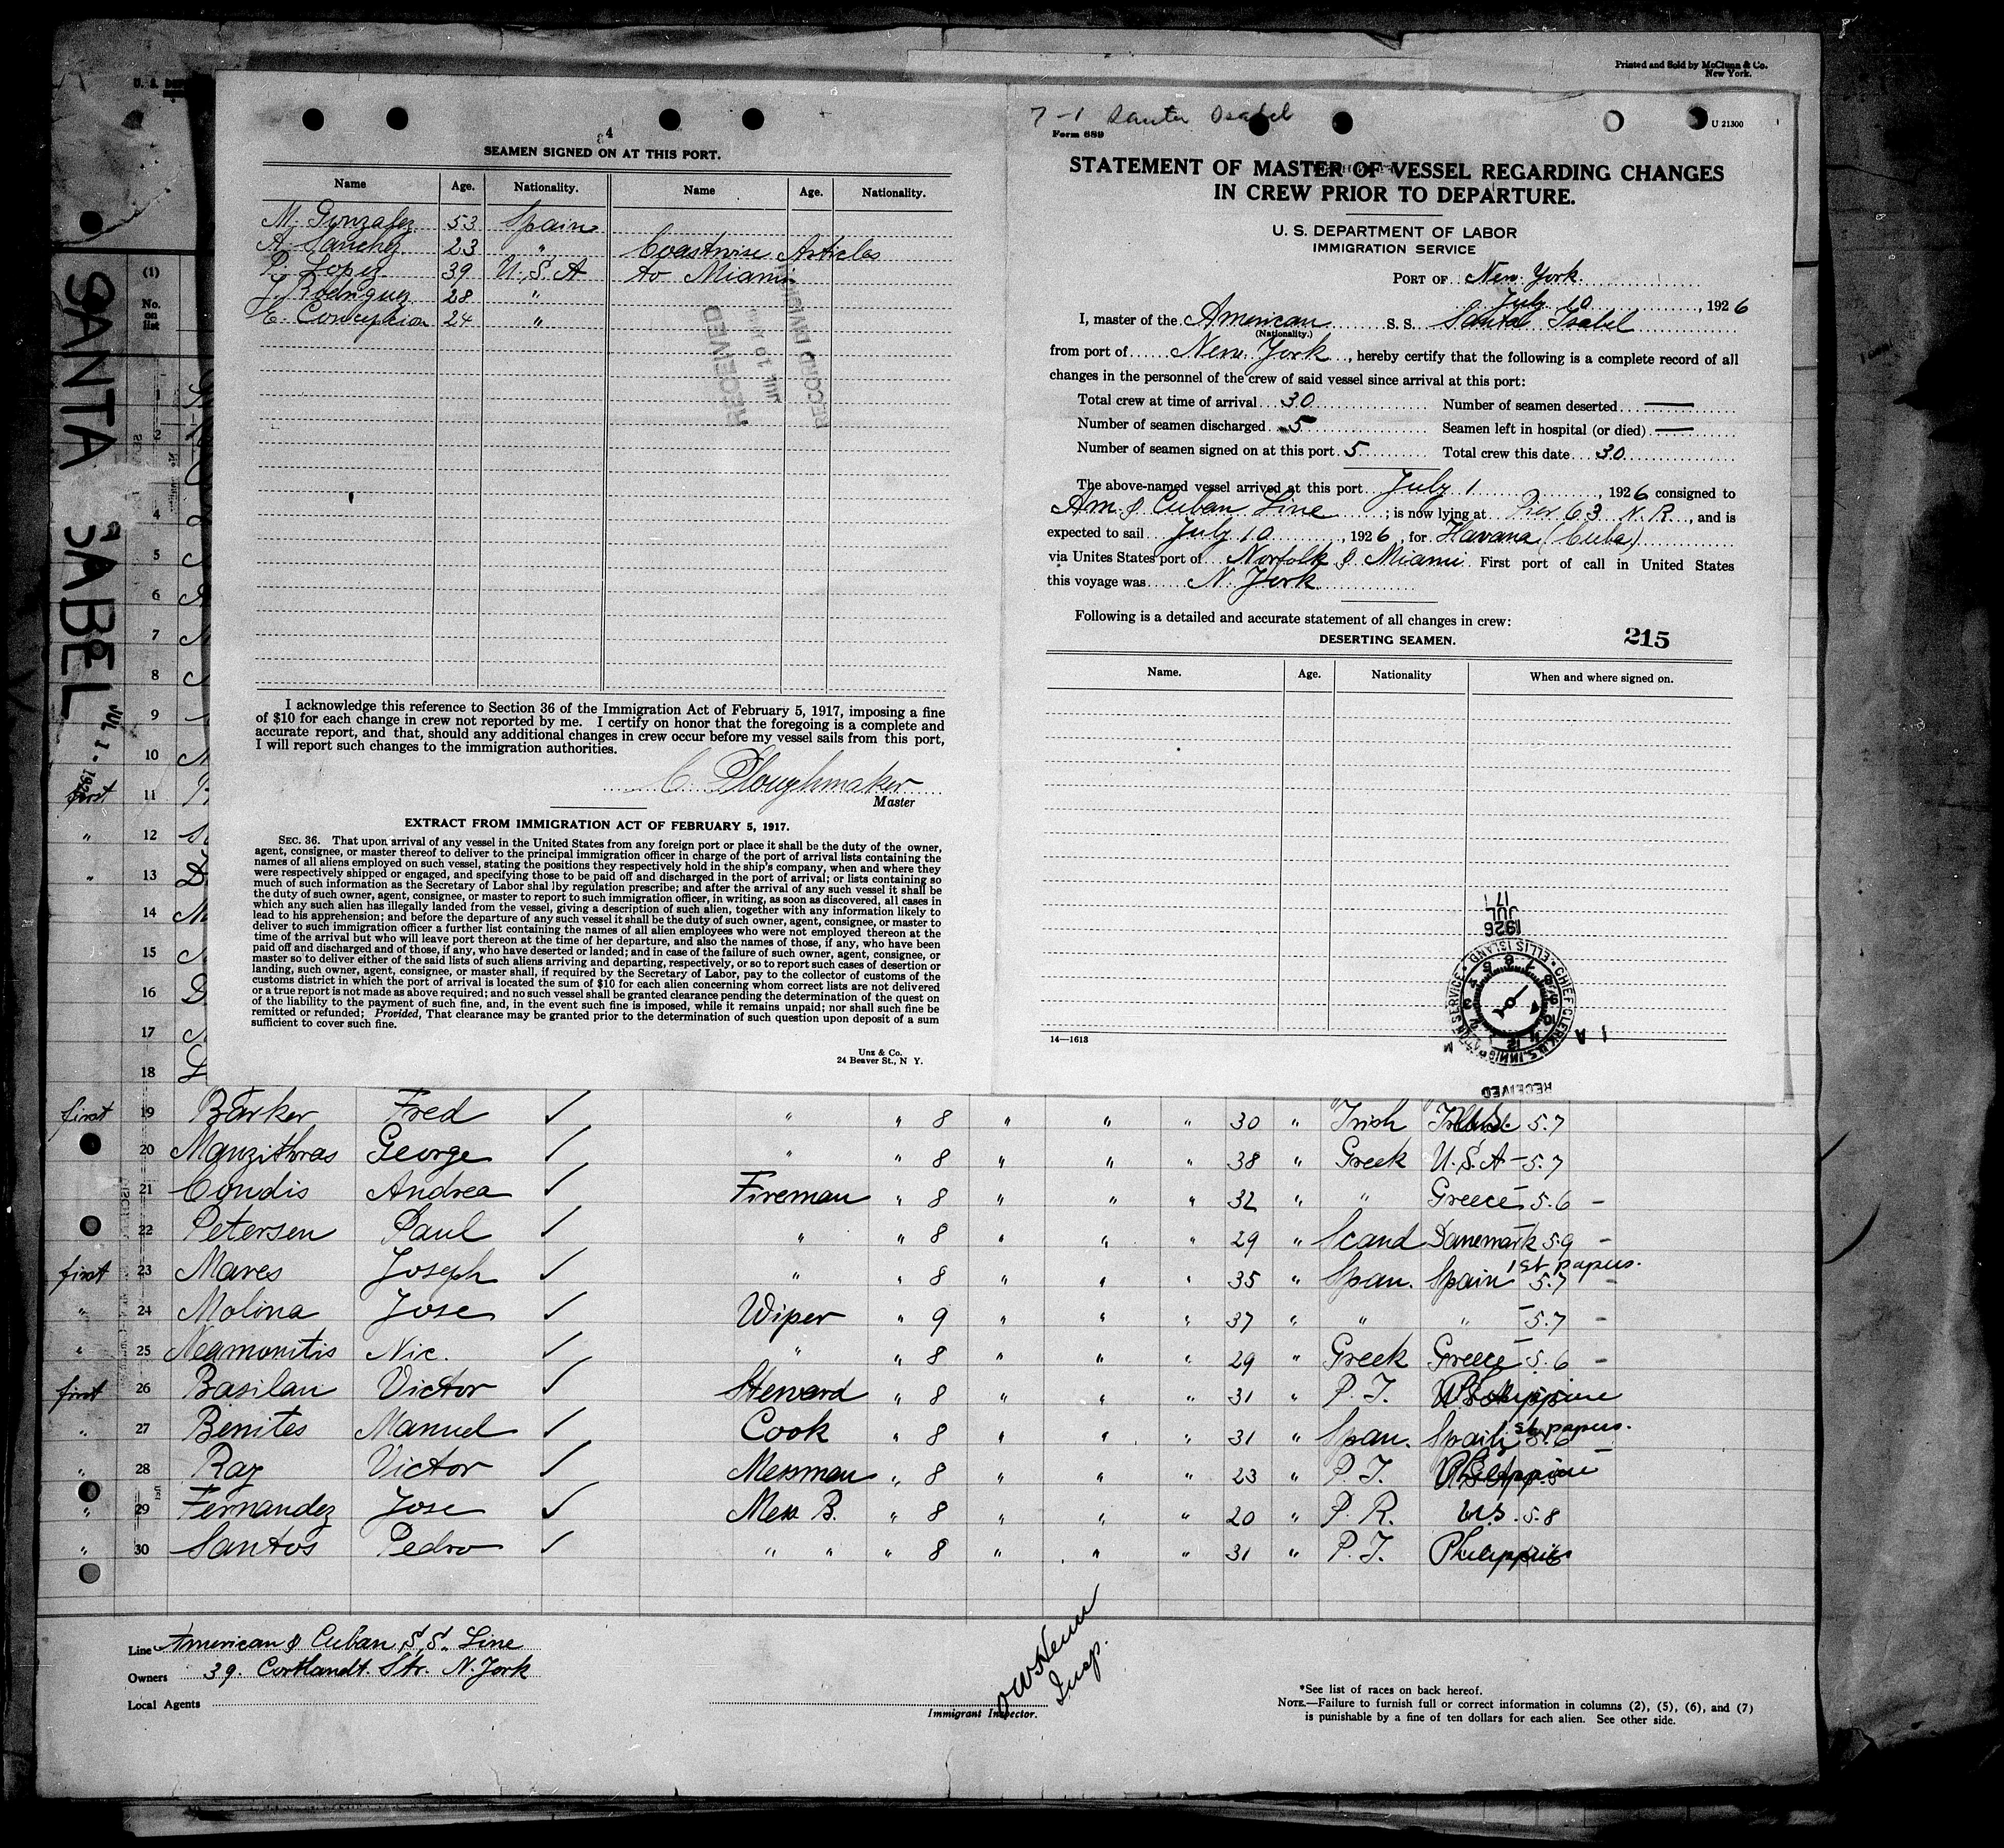 Printed and Sold by McClunn & Co.
New York.
U. S.
SANTA ISABEL
JUL 1 - 1926
4
SEAMEN SIGNED ON AT THIS PORT.
Name Age. Nationality. Name Age. Nationality.
M. Gonzalez 53 Spain
A. Sanchez 23 " Coastwise Articles
P. Lopez 39 U.S.A to Miami
J. Rodriguez 28 "
E. Concepcion 24 "
RECEIVED
JUL 10 1926
RECORD DIVISION
I acknowledge this reference to Section 36 of the Immigration Act of February 5, 1917, imposing a fine
of $10 for each change in crew not reported by me. I certify on honor that the foregoing is a complete and
accurate report, and that, should any additional changes in crew occur before my vessel sails from this port,
I will report such changes to the immigration authorities.
C. Ploughmaker
Master
EXTRACT FROM IMMIGRATION ACT OF FEBRUARY 5, 1917.
SEC. 36. That upon arrival of any vessel in the United States from any foreign port or place it shall be the duty of the owner,
agent, consignee, or master thereof to deliver to the principal immigration officer in charge of the port of arrival lists containing the
names of all aliens employed on such vessel, stating the positions they respectively hold in the ship's company, when and where they
were respectively shipped or engaged, and specifying those to be paid off and discharged in the port of arrival; or lists containing so
much of such information as the Secretary of Labor shal lby regulation prescribe; and after the arrival of any such vessel it shall be
the duty of such owner, agent, consignee, or master to report to such immigration officer, in writing, as soon as discovered, all cases in
which any such alien has illegally landed from the vessel, giving a description of such alien, together with any information likely to
lead to his apprehension; and before the departure of any such vessel it shall be the duty of such owner, agent, consignee, or master to
deliver to such immigration officer a further list containing the names of all alien employees who were not employed thereon at the
time of the arrival but who will leave port thereon at the time of her departure, and also the names of those, if any, who have been
paid off and discharged and of those, if any, who have deserted or landed; and in case of the failure of such owner, agent, consignee, or
master so to deliver either of the said lists of such aliens arriving and departing, respectively, or so to report such cases of desertion or
landing, such owner, agent, consignee, or master shall, if required by the Secretary of Labor, pay to the collector of customs of the
customs district in which the port of arrival is located the sum of $10 for each alien concerning whom correct lists are not delivered
or a true report is not made as above required; and no such vessel shall be granted clearance pending the determination of the quest on
of the liability to the payment of such fine, and, in the event such fine is imposed, while it remains unpaid; nor shall such fine be
remitted or refunded; Provided, That clearance may be granted prior to the determination of such question upon deposit of a sum
sufficient to cover such fine.
Unz & Co.
24 Beaver St., N Y.
7-1 Santa Isabel
Form 689
U 21300
STATEMENT OF MASTER OF VESSEL REGARDING CHANGES
IN CREW PRIOR TO DEPARTURE.
U. S. DEPARTMENT OF LABOR
IMMIGRATION SERVICE
PORT OF New York
July 10, 1926
I, master of the American S. S. Santa Isabel
(Nationality.)
from port of New York, hereby certify that the following is a complete record of all
changes in the personnel of the crew of said vessel since arrival at this port:
Total crew at time of arrival 30 Number of seamen deserted —
Number of seamen discharged 5 Seamen left in hospital (or died) —
Number of seamen signed on at this port 5 Total crew this date 30
The above-named vessel arrived at this port July 1, 1926 consigned to
Am. & Cuban Line; is now lying at Pier 63 N.R., and is
expected to sail July 10, 1926, for Havana (Cuba)
via Unites States port of Norfolk & Miami First port of call in United States
this voyage was N. York
Following is a detailed and accurate statement of all changes in crew:
DESERTING SEAMEN.
215
Name. Age. Nationality When and where signed on.
14—1613
1926
JUL
17
CHIEF CLERK U.S. IMMIGRATION SERVICE • ELLIS ISLAND •
RECEIVED
(1)
No. on list
1
2
4
5
6
7
8
9
10
first 11
" 12
" 13
14
15
16
17
18
first 19 Barker Fred ✓ " " 8 " " " 30 " Irish 5.7
20 Manzithras George ✓ " " 8 " " " 38 " Greek U.S.A - 5.7
21 Condis Andrea ✓ Fireman " 8 " " " 32 " " Greece 5.6 -
22 Petersen Paul ✓ " " 8 " " " 29 " Scand Danemark 5.9 -
first 23 Mares Joseph ✓ " " 8 " " " 35 " Span. Spain 1st papers. 5.7 -
" 24 Molina Jose ✓ Wiper " 9 " " " 37 " " " 5.7 -
" 25 Neamonitis Nic. ✓ " " 8 " " " 29 " Greek Greece 5.6 -
first 26 Basilan Victor ✓ Steward " 8 " " " 31 " P.I. Philippine
" 27 Benites Manuel ✓ Cook " 8 " " " 31 " Span. Spain 1st papers. 5.6
" 28 Ray Victor ✓ Messman " 8 " " " 23 " P.I. Philippine
" 29 Fernandez Jose ✓ Mess B. " 8 " " " 20 " P.R. U.S. 5.8
" 30 Santos Pedro ✓ " " " 8 " " " 31 " P.I. Philippines
Line American & Cuban S.S. Line
Owners 39. Cortlandt. Str. N. York
Local Agents
Insp.
Immigrant Inspector.
*See list of races on back hereof.
NOTE.—Failure to furnish full or correct information in columns (2), (5), (6), and (7)
is punishable by a fine of ten dollars for each alien. See other side.